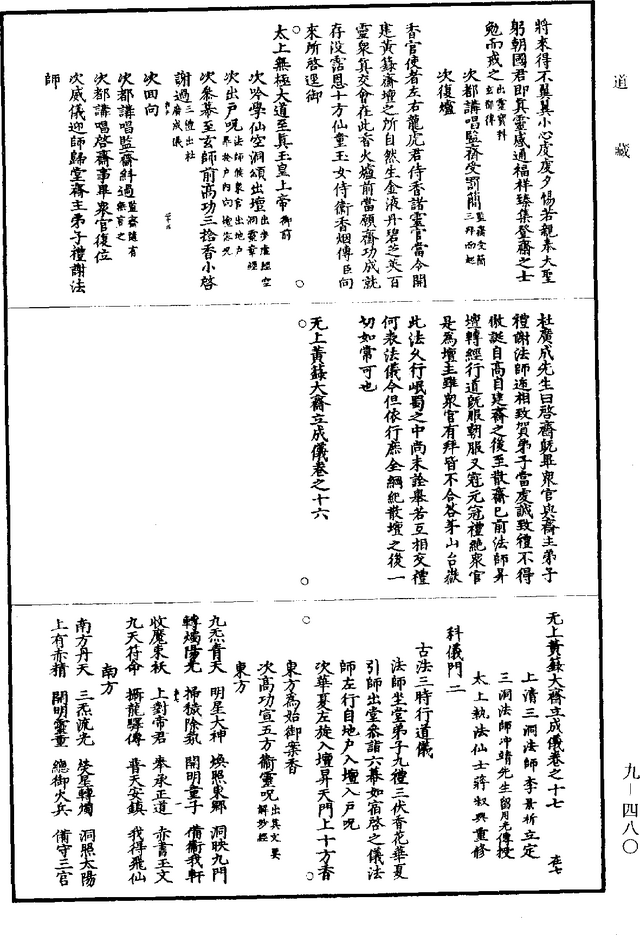 道藏
九—四八〇
將來得不翼翼小心虔虔夕惕若親奉大聖
躬朝國君即真靈感通福祥臻集登齋之士
勉而戒之出靈寶科玄師傳
次都講唱監齋受罰簡監齋受簡三拜而起
次復爐
香官使者左右龍虎君侍香諸靈官當令開
建黃籙齋壇之所自然生金液丹碧芝英百
靈衆真交會在此香火爐前當願齋功成就
存没霑恩十方仙童玉女侍衛香烟傳臣向
來所啓逕御
太上無極大道至真玉皇上帝御前
次吟學仙空洞頌出壇
次出戶呪
次衆募至玄師前高功三捻香小啓
謝過三禮出杜廣成儀
次回向
次都講唱監齋糾過監齋隨有無言之
次都講唱啓齋事畢衆官復位
次威儀迎師歸堂齋主弟子禮謝法
師
杜廣成先生曰啓齋既畢衆官與齋主弟子
禮謝法師遞相致賀弟子當虔誠致禮不得
傲誕自高自建齋之後至散齋已前法師昇
壇轉經行道既服朝服又冠元冠禮絶衆官
是爲壇主雖衆官有拜皆不合答茅山台嶽
此法久行岷蜀之中尚未詮舉若互相交禮
何表法儀今但依行庶全綱紀散壇之後一
切如常可也
无上黃籙大齋立成儀卷之十六
无上黃籙大齋立成儀卷之十七
上清三洞法師李景祈立定
三洞法師冲靖先生留用光傳授
太上執法仙士蔣叔輿重修
科儀門二
古法三時行道儀
法師坐堂弟子九禮三伏香花華夏
引師出堂叅詣六幕如宿啓之儀法
師左行自地戶入壇入戶呪
次華夏左旋入壇昇天門上十方香
東方爲始御案香
次高功宣五方衛靈呪出真文要解妙經
東方
九炁青天　明星大神　煥照東鄉　洞映九門
轉燭陽光　掃穢除氛　開明童子　備衛我軒
收魔束袄　上對帝君　奉承正道　赤書玉文
九天符命　攝龍驛傳　普天安鎮　我得飛仙
南方
南方丹天　三炁流光　熒星轉燭　洞照太陽
上有赤精　開明靈童　總御火兵　備守三官